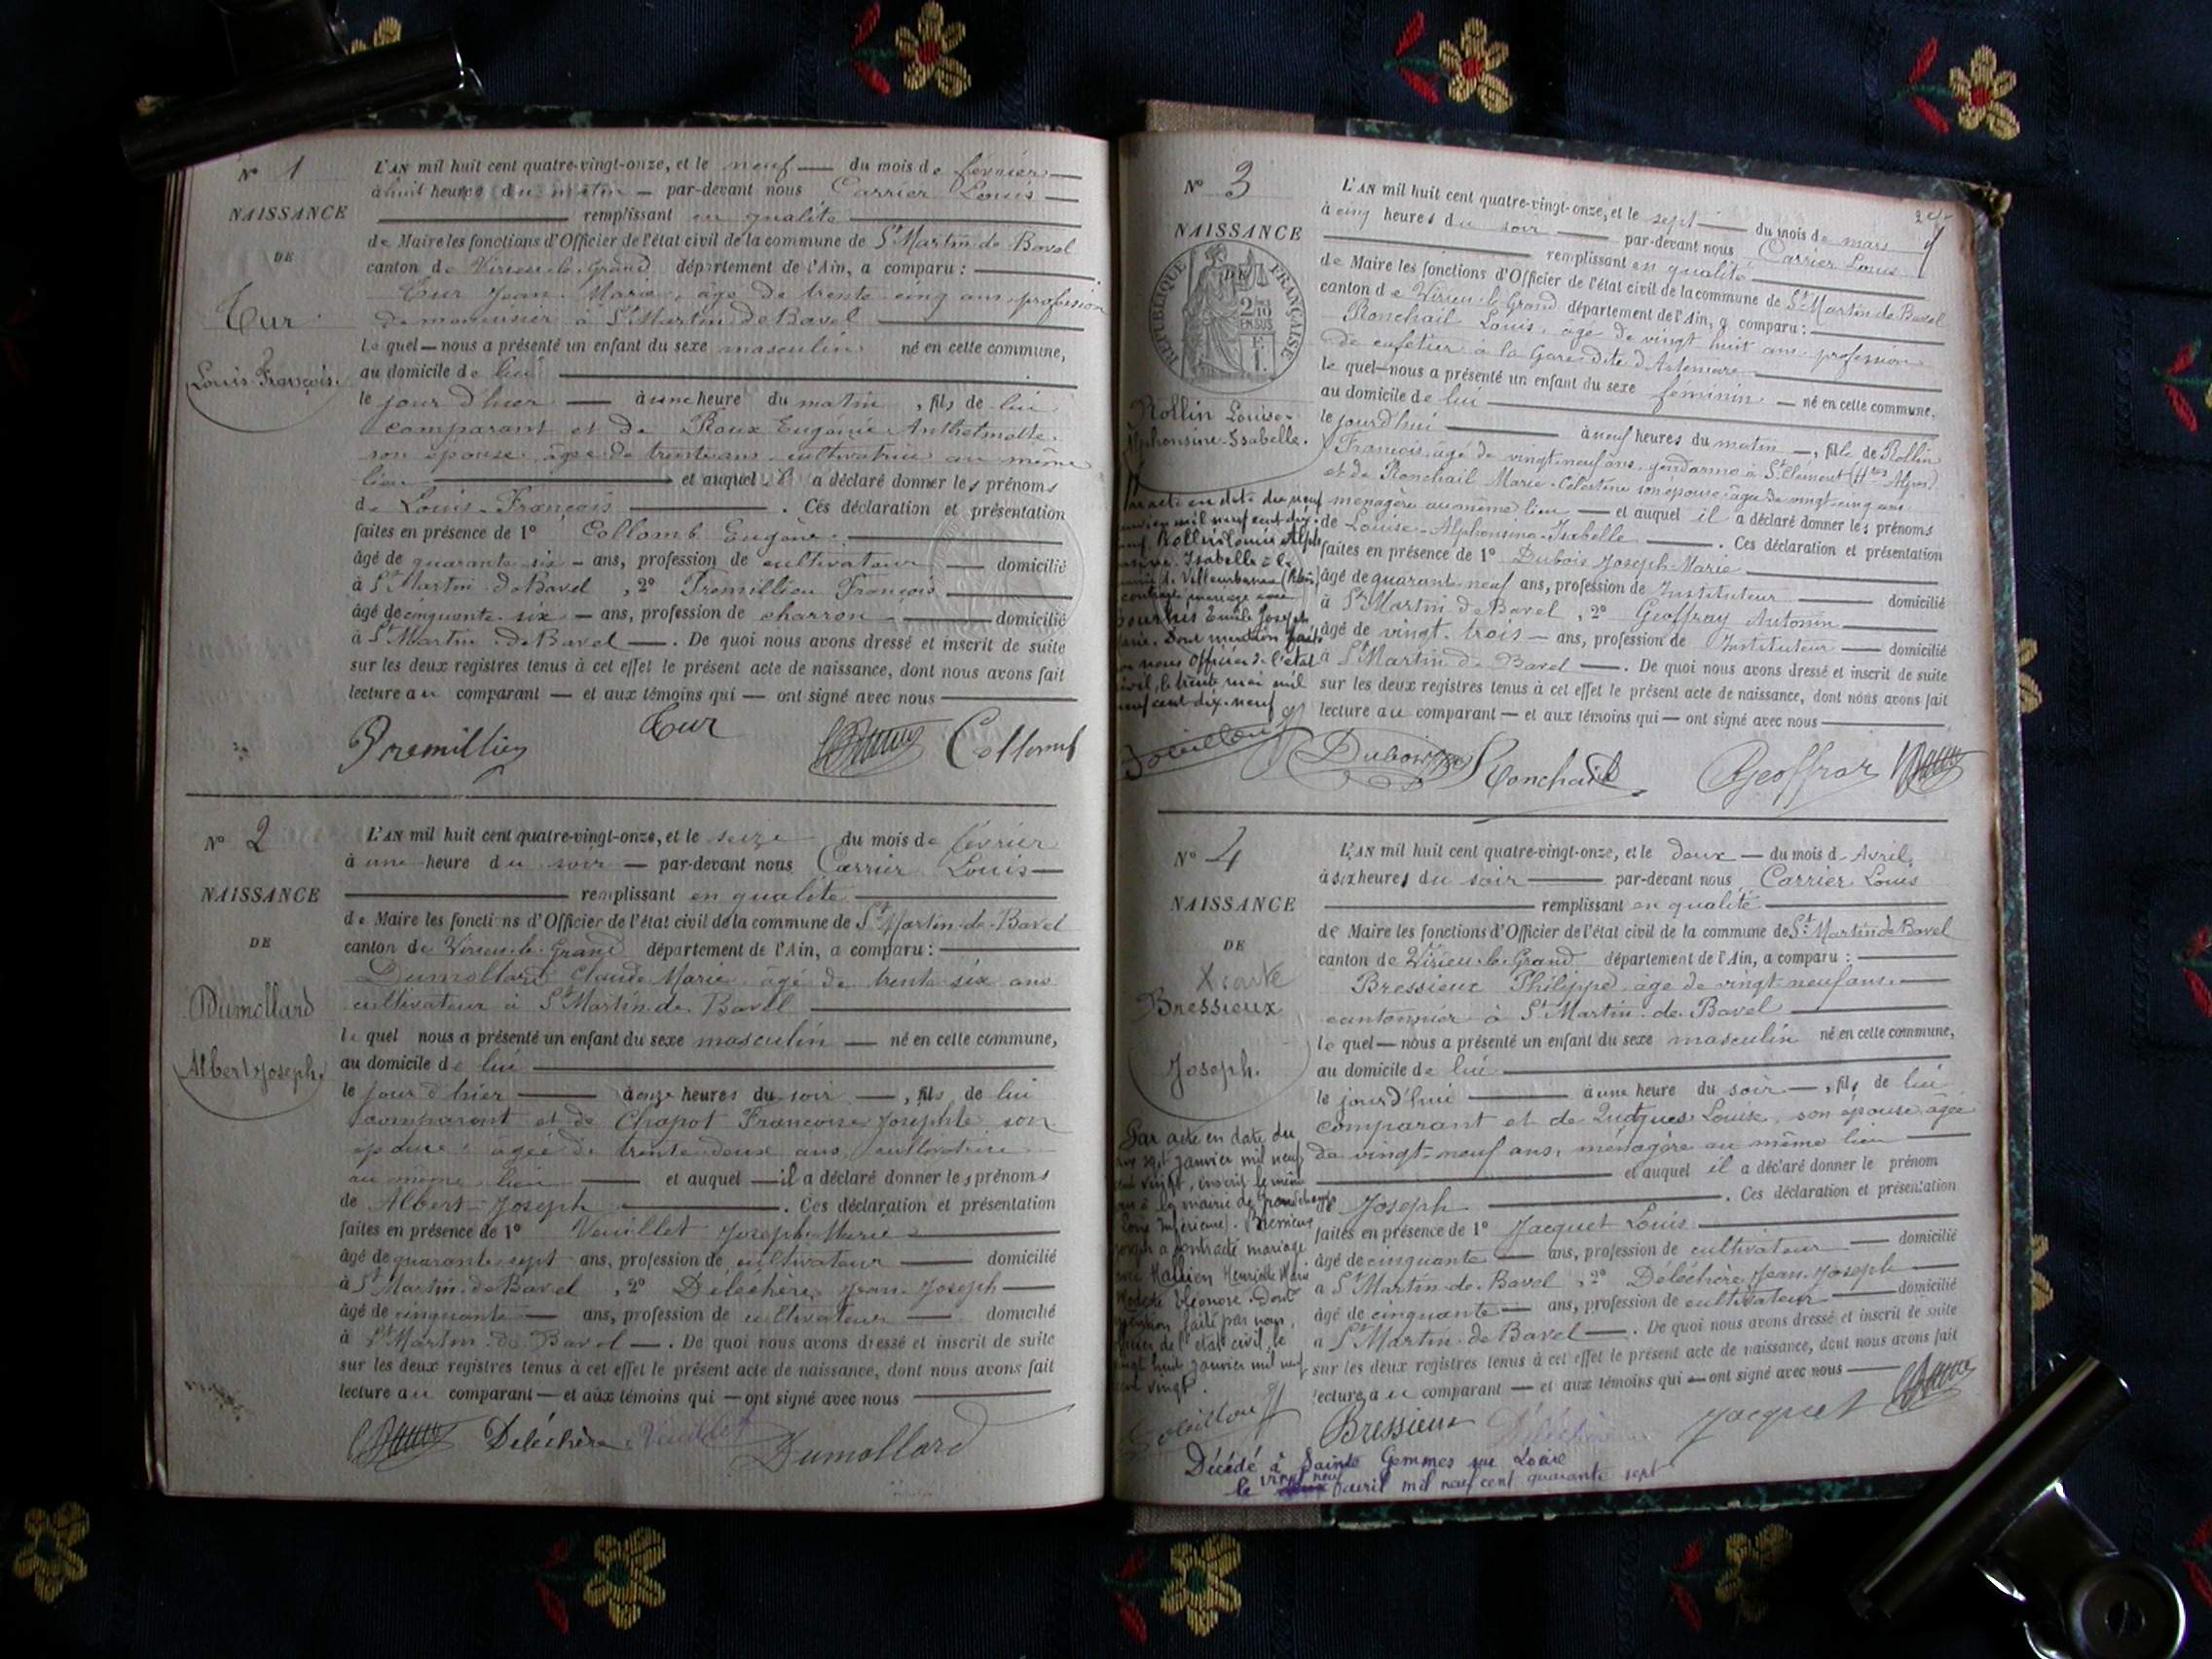 N° 1
NAISSANCE
DE
Cur
Louis-François.
L'AN mil huit cent quatre-vingt-onze, et le neuf du mois de février
à huit heures du matin par-devant nous Carrier Louis
remplissant en qualité
de Maire les fonctions d'Officier de l'état civil de la commune de St Martin de Bavel
canton de Virieu-le-Grand département de l'Ain, a comparu :
Cur Jean-Marie, âgé de trente cinq ans, profession
de menuisier à St Martin de Bavel
le quel nous a présenté un enfant du sexe masculin né en cette commune,
au domicile de lui
le jour d'hier à une heure du matin, fils de lui
comparant et de Roux Eugénie Anthelmette
son épouse, âgée de trente ans cultivatrice au même
lieu et auquel il a déclaré donner les prénoms
de Louis-François. Ces déclaration et présentation
faites en présence de 1° Collomb Eugène
âgé de quarante six ans, profession de cultivateur domicilié
à St Martin de Bavel, 2° Premillieu François
âgé de cinquante six ans, profession de charron domicilié
à St Martin de Bavel. De quoi nous avons dressé et inscrit de suite
sur les deux registres tenus à cet effet le présent acte de naissance, dont nous avons fait
lecture au comparant et aux témoins qui ont signé avec nous
Premillieu Cur Collomb
N° 2
NAISSANCE
DE
Dumollard
Albert-Joseph.
L'AN mil huit cent quatre-vingt-onze, et le seize du mois de février
à une heure du soir par-devant nous Carrier Louis
remplissant en qualité
de Maire les fonctions d'Officier de l'état civil de la commune de St Martin-de-Bavel
canton de Virieu-le-Grand département de l'Ain, a comparu :
Dumollard Claude Marie âgé de trente six ans
cultivateur à St Martin de Bavel
le quel nous a présenté un enfant du sexe masculin né en cette commune,
au domicile de lui
le jour d'hier à onze heures du soir, fils de lui
comparant et de Chapot Françoise Josephte son
épouse âgée de trente deux ans, cultivatrice
au même lieu et auquel il a déclaré donner les prénoms
de Albert-Joseph. Ces déclaration et présentation
faites en présence de 1° Veuillet Joseph-Marie
âgé de quarante sept ans, profession de cultivateur domicilié
à St Martin de Bavel, 2° Déléchère Jean-Joseph
âgé de cinquante ans, profession de cultivateur domicilié
à St Martin de Bavel. De quoi nous avons dressé et inscrit de suite
sur les deux registres tenus à cet effet le présent acte de naissance, dont nous avons fait
lecture au comparant et aux témoins qui ont signé avec nous
Déléchère Veuillet Dumollard
N° 3
NAISSANCE
DE
RÉPUBLIQUE FRANÇAISE
2/10
EN SUS
Rollin Louise-
Alphonsine-Isabelle.
L'AN mil huit cent quatre-vingt-onze, et le sept du mois de mars
à cinq heures du soir par-devant nous Carrier Louis
remplissant en qualité
de Maire les fonctions d'Officier de l'état civil de la commune de St Martin de Bavel
canton de Virieu-le-Grand département de l'Ain, a comparu :
Ronchail Louis, âgé de vingt huit ans, profession
de cafetier à la Gare dite d'Artemare
le quel nous a présenté un enfant du sexe féminin né en cette commune,
au domicile de lui
le jourd'hui à neuf heures du matin, fille de Rollin
François, âgé de vingt neuf ans, gendarme à St Clément (Htes Alpes)
et de Ronchail Marie-Célestine son épouse âgée de vingt cinq ans
ménagère au même lieu et auquel il a déclaré donner les prénoms
de Louise-Alphonsine-Isabelle. Ces déclaration et présentation
faites en présence de 1° Dubois Joseph-Marie
âgé de quarante neuf ans, profession de Instituteur domicilié
à St Martin de Bavel, 2° Geoffray Antonin
âgé de vingt-trois ans, profession de Instituteur domicilié
à St Martin de Bavel. De quoi nous avons dressé et inscrit de suite
sur les deux registres tenus à cet effet le présent acte de naissance, dont nous avons fait
lecture au comparant et aux témoins qui ont signé avec nous
acte en date du neuf
mil neuf cent dix-
neuf, Rollin Louise Alpho
nsine Isabelle à la
mairie de Villeurbanne (Rhône)
contracté mariage avec
Emile Joseph
Marie. Dont mention faite
par nous Officier de l'état
civil, le trente mai mil
neuf cent dix-neuf
Dubois Ronchail Geoffray
N° 4
NAISSANCE
DE
Bressieux
Joseph.
L'AN mil huit cent quatre-vingt-onze, et le deux du mois d'Avril,
à six heures du soir par-devant nous Carrier Louis
remplissant en qualité
de Maire les fonctions d'Officier de l'état civil de la commune de St Martin de Bavel
canton de Virieu-le-Grand département de l'Ain, a comparu :
Bressieux Philippe, âgé de vingt-neuf ans,
cantonnier à St Martin-de-Bavel
le quel nous a présenté un enfant du sexe masculin né en cette commune,
au domicile de lui
le jourd'hui à une heure du soir, fils de lui
comparant et de Louise, son épouse, âgée
de vingt-neuf ans, ménagère au même lieu
et auquel il a déclaré donner le prénom
de Joseph. Ces déclaration et présentation
faites en présence de 1° Jacquet Louis
âgé de cinquante ans, profession de cultivateur domicilié
à St Martin-de-Bavel, 2° Déléchère Jean-Joseph
âgé de cinquante ans, profession de cultivateur domicilié
à St Martin-de-Bavel. De quoi nous avons dressé et inscrit de suite
sur les deux registres tenus à cet effet le présent acte de naissance, dont nous avons fait
lecture au comparant et aux témoins qui ont signé avec nous
Par acte en date du
sept janvier mil neuf
cent vingt, inscrit le même
jour à la mairie de Grandchamps
(Loire Inférieure). Bressieux
Joseph a contracté mariage
avec Hallien Henriette Marie
Modeste Eléonore. Dont
mention faite par nous,
officier de l'état civil, le
vingt huit janvier mil neuf
cent vingt.
Bressieux Déléchère Jacquet
Décédé à Sainte Gemmes sur Loire
le vingt neuf avril mil neuf cent quarante sept